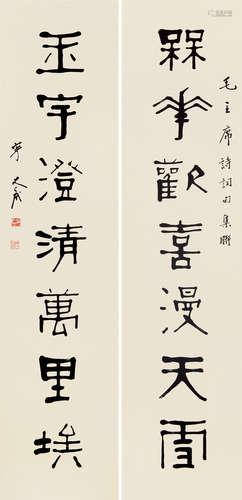 槑華歡喜漫天雪
毛主席詩詞句集聯
玉宇澄清萬里埃
寧斧成